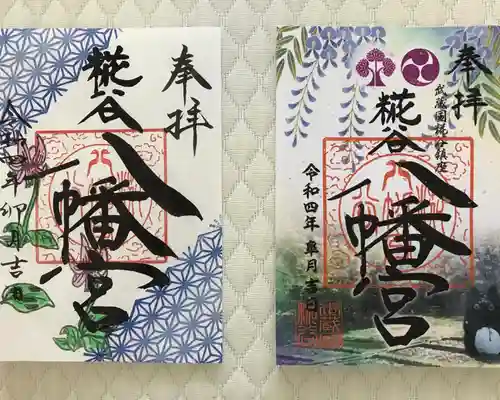 奉拝
糀谷八幡宮
令和四年 卯月吉日
奉拝
武蔵国糀谷鎮座
糀谷八幡宮
令和四年 皐月吉日